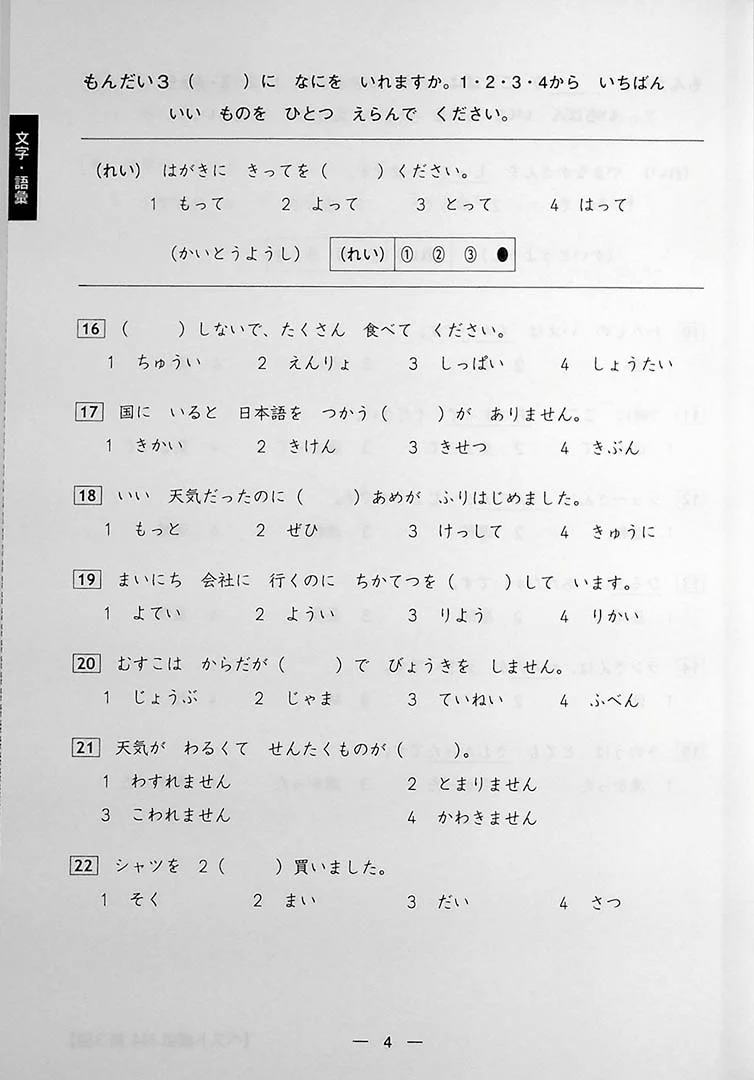 文字・語彙
もんだい3 (　　)に なにを いれますか。1・2・3・4から いちばん
いい ものを ひとつ えらんで ください。
(れい) はがきに きってを (　　) ください。
1 もって 2 よって 3 とって 4 はって
(かいとうようし) (れい) ① ② ③ ●
16 (　　) しないで、たくさん 食べて ください。
1 ちゅうい 2 えんりょ 3 しっぱい 4 しょうたい
17 国に いると 日本語を つかう (　　) が ありません。
1 きかい 2 きけん 3 きせつ 4 きぶん
18 いい 天気だったのに (　　) あめが ふりはじめました。
1 もっと 2 ぜひ 3 けっして 4 きゅうに
19 まいにち 会社に 行くのに ちかてつを (　　) して います。
1 よてい 2 ようい 3 りよう 4 りかい
20 むすこは からだが (　　) で びょうきを しません。
1 じょうぶ 2 じゃま 3 ていねい 4 ふべん
21 天気が わるくて せんたくものが (　　)。
1 わすれません 2 とまりません
3 こわれません 4 かわきません
22 シャツを 2 (　　) 買いました。
1 そく 2 まい 3 だい 4 さつ
— 4 —